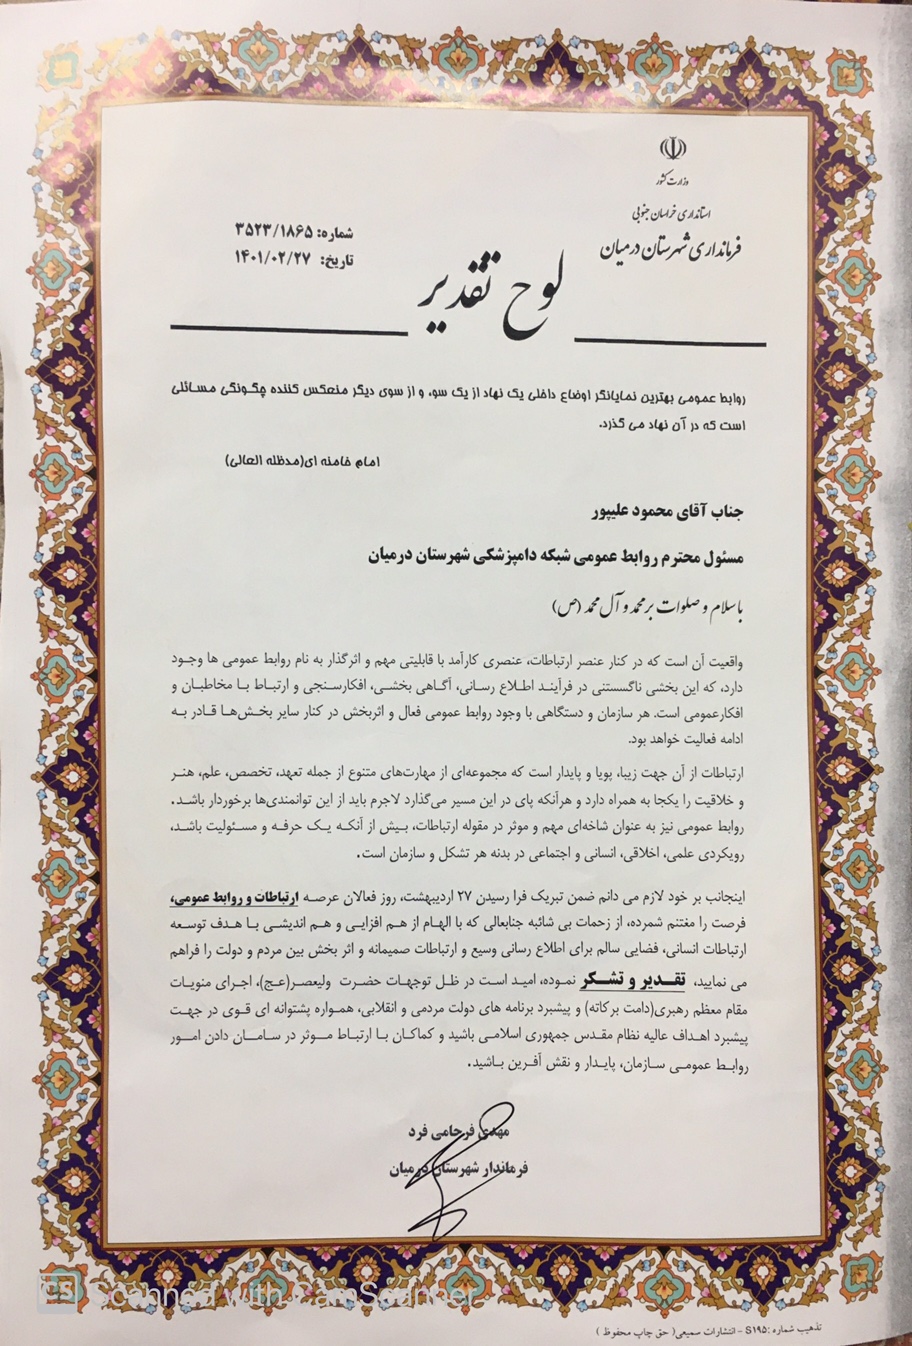 وزارت کشور
استانداری خراسان جنوبی
فرمانداری شهرستان درمیان
شماره: ۳۵۲۳/۱۸۶۵
تاریخ: ۱۴۰۱/۰۲/۲۷
لوح تقدیر
روابط عمومی بهترین نمایانگر اوضاع داخلی یک نهاد از یک سو، و از سوی دیگر منعکس کننده چگونگی مسائلی
است که در آن نهاد می گذرد.
امام خامنه ای(مدظله العالی)
جناب آقای محمود علیپور
مسئول محترم روابط عمومی شبکه دامپزشکی شهرستان درمیان
با سلام و صلوات بر محمد و آل محمد (ص)
واقعیت آن است که در کنار عنصر ارتباطات، عنصری کارآمد با قابلیتی مهم و اثرگذار به نام روابط عمومی ها وجود
دارد، که این بخشی ناگسستنی در فرآیند اطلاع رسانی، آگاهی بخشی، افکارسنجی و ارتباط با مخاطبان و
افکارعمومی است. هر سازمان و دستگاهی با وجود روابط عمومی فعال و اثربخش در کنار سایر بخش‌ها قادر به
ادامه فعالیت خواهد بود.
ارتباطات از آن جهت زیبا، پویا و پایدار است که مجموعه‌ای از مهارت‌های متنوع از جمله تعهد، تخصص، علم، هنر
و خلاقیت را یکجا به همراه دارد و هرآنکه پای در این مسیر می‌گذارد لاجرم باید از این توانمندی‌ها برخوردار باشد.
روابط عمومی نیز به عنوان شاخه‌ای مهم و موثر در مقوله ارتباطات، بیش از آنکه یک حرفه و مسئولیت باشد،
رویکردی علمی، اخلاقی، انسانی و اجتماعی در بدنه هر تشکل و سازمان است.
اینجانب بر خود لازم می دانم ضمن تبریک فرا رسیدن ۲۷ اردیبهشت، روز فعالان عرصه ارتباطات و روابط عمومی،
فرصت را مغتنم شمرده، از زحمات بی شائبه جنابعالی که با الهام از هم افزایی و هم اندیشی با هدف توسعه
ارتباطات انسانی، فضایی سالم برای اطلاع رسانی وسیع و ارتباطات صمیمانه و اثر بخش بین مردم و دولت را فراهم
می نمایید، تقدیر و تشکر نموده، امید است در ظل توجهات حضرت ولیعصر(عج)، اجرای منویات
مقام معظم رهبری(دامت برکاته) و پیشبرد برنامه های دولت مردمی و انقلابی، همواره پشتوانه ای قوی در جهت
پیشبرد اهداف عالیه نظام مقدس جمهوری اسلامی باشید و کماکان با ارتباط موثر در سامان دادن امور
روابط عمومی سازمان، پایدار و نقش آفرین باشید.
مهدی فرجامی فرد
فرماندار شهرستان درمیان
CS Scanned with CamScanner
تذهیب شماره :S۱۹۵ - انتشارات سمیعی( حق چاپ محفوظ )